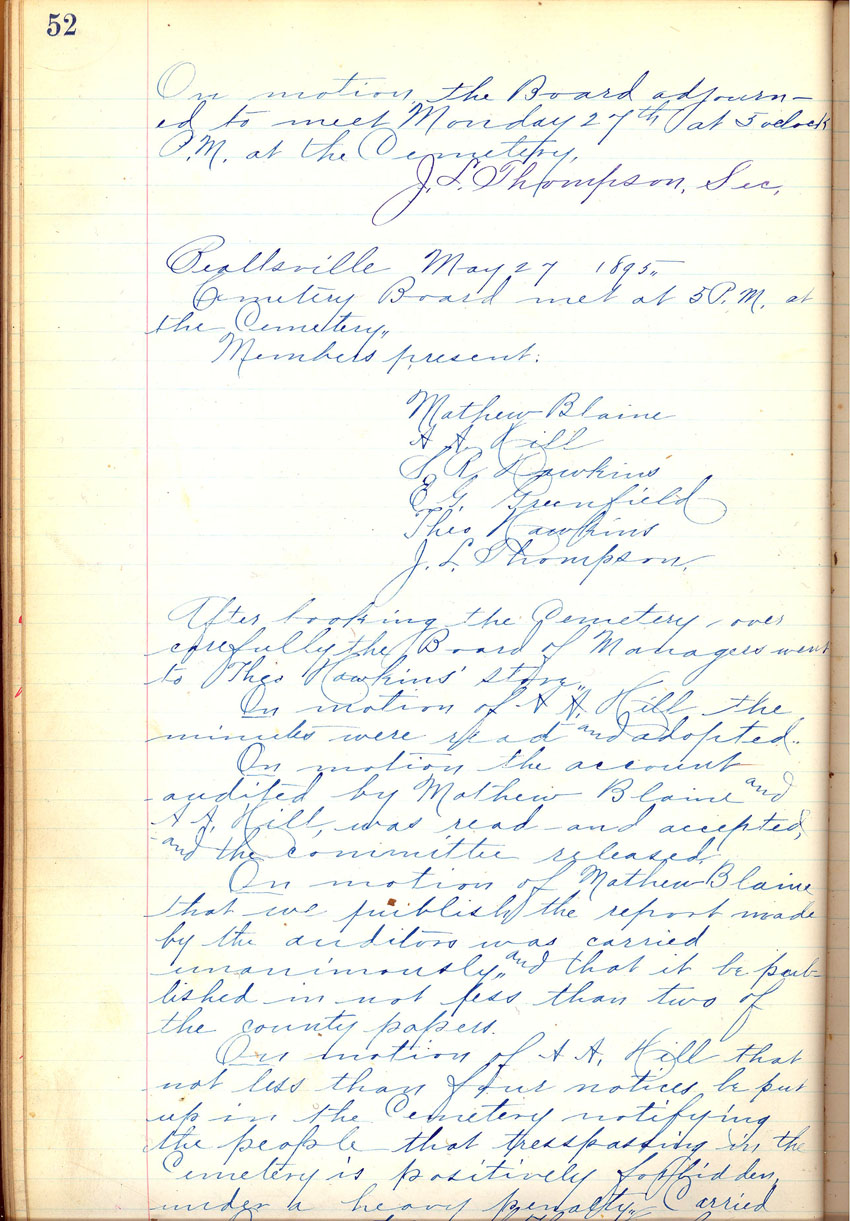 52
On motion, the Board adjourn-
ed to meet Monday 27th at 5 oclock
P.M. at the Cemetery,
J. L. Thompson, Sec.
Beallsville May 27 1895"
Cemetery Board met at 5 P.M. at
the Cemetery"
Members present:
Mathew Blaine
A A. Hill
S R Hawkins
E G. Greenfield
Theo Hawkins
J. L. Thompson.
After looking the Cemetery over
carefully the Board of Managers went
to Theo Hawkins' store"
On motion of A A. Hill the
minutes were read and adopted.
On motion the account
audited by Mathew Blaine and
A A. Hill, was read and accepted,
and the committee released.
On motion of Mathew Blaine
that we publish the report made
by the auditors was carried
unanimously" and that it be pub-
lished in not less than two of
the county papers.
On motion of A A. Hill that
not less than four notices be put
up in the Cemetery notifying
the people that tresspassing in the
Cemetery is positively forbidden,
under a heavy penalty" Carried